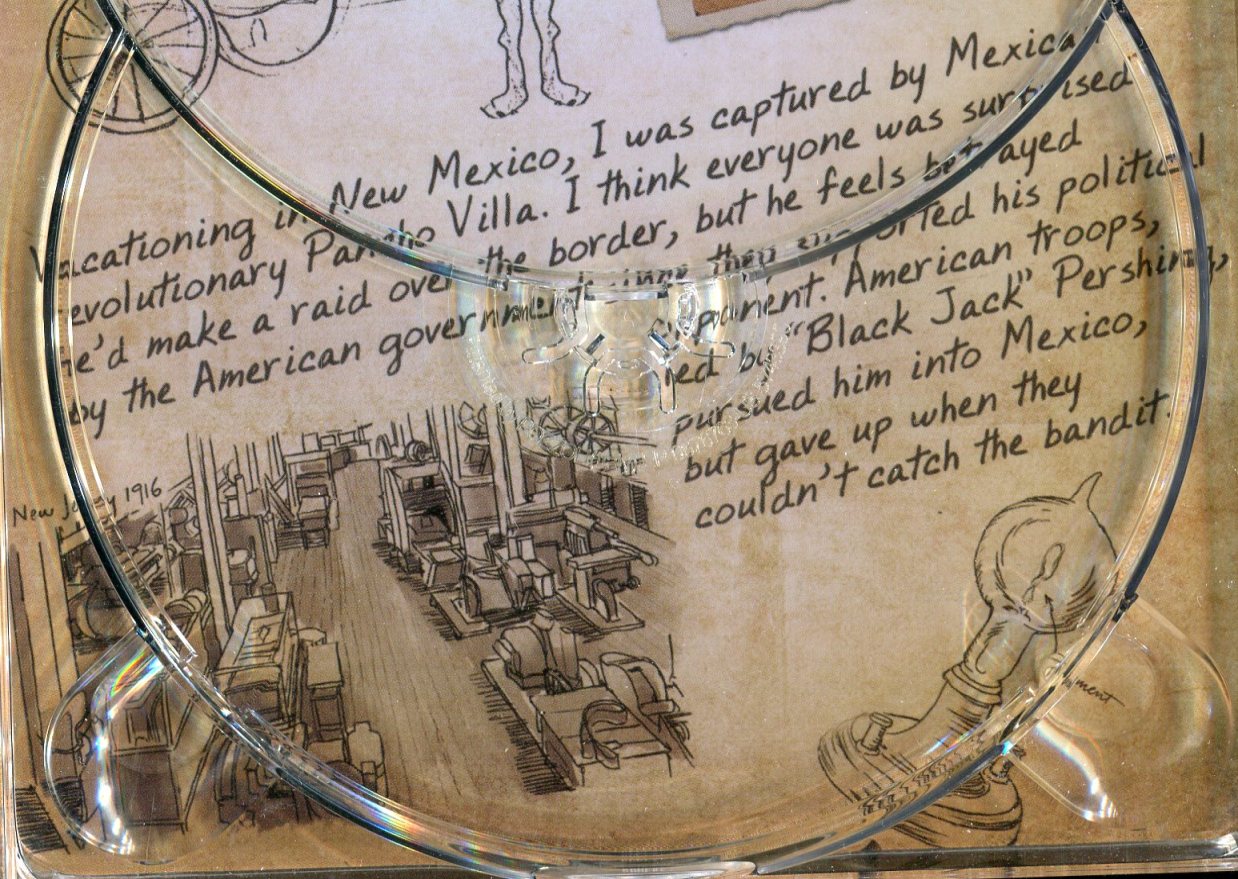 Vacationing in New Mexico, I was captured by Mexican
revolutionary Pancho Villa. I think everyone was surprised
he'd make a raid over the border, but he feels betrayed
by the American government since they supported his political
opponent. American troops,
led by "Black Jack" Pershing,
pursued him into Mexico,
but gave up when they
couldn't catch the bandit.
New Jersey 1916